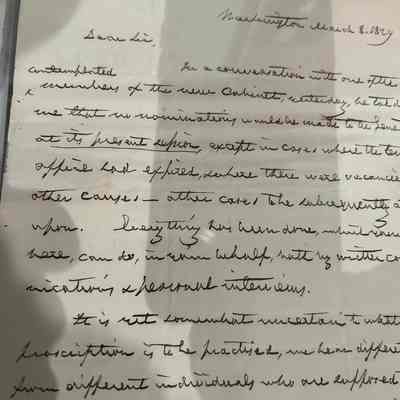 Washington March 8. 1829
Dear Sir,
contemplated In a conversation with one of the
members of the new Cabinet, yesterday, he told
me that no nominations would be made to the
at its present session, except in cases where the
office had expired, where there were vacancies
other causes – other cases to be subsequently
upon. Everything has been done, which
here, can do, in your behalf, both by written co
nications & personal interviews.
It is yet somewhat uncertain to what
proscription is to be practised, we hear differe
from different individuals who are supposed